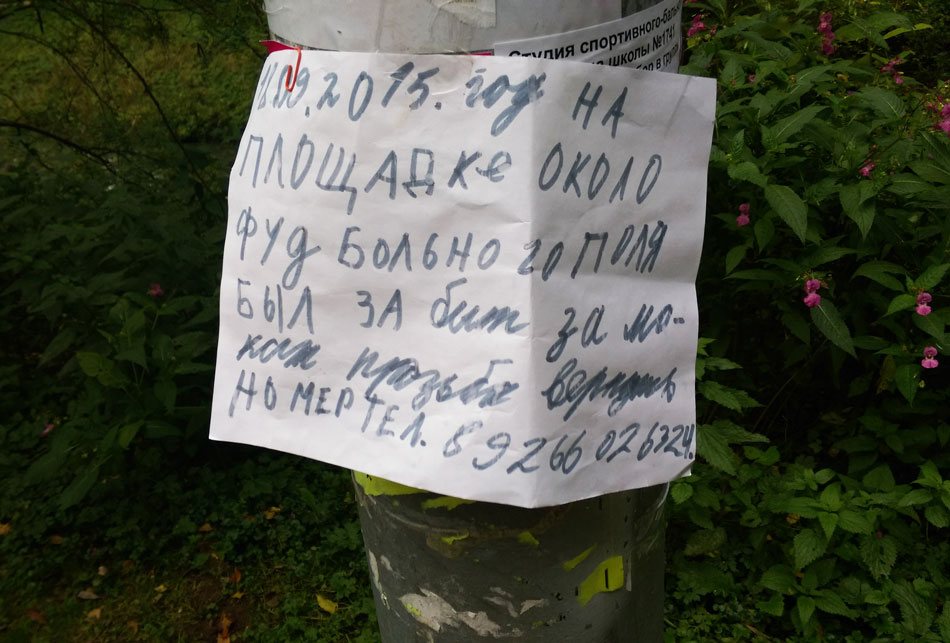 Студия спортивного-баль
школы №1741
в груп
11.09.2015. год НА
ПЛОЩАДКЕ ОКОЛО
ФУД БОЛЬНО гО ПОЛЯ
БЫЛ ЗА бит за мо-
кат прозьба вернуть
НОМЕР ТЕЛ. 89266026324.